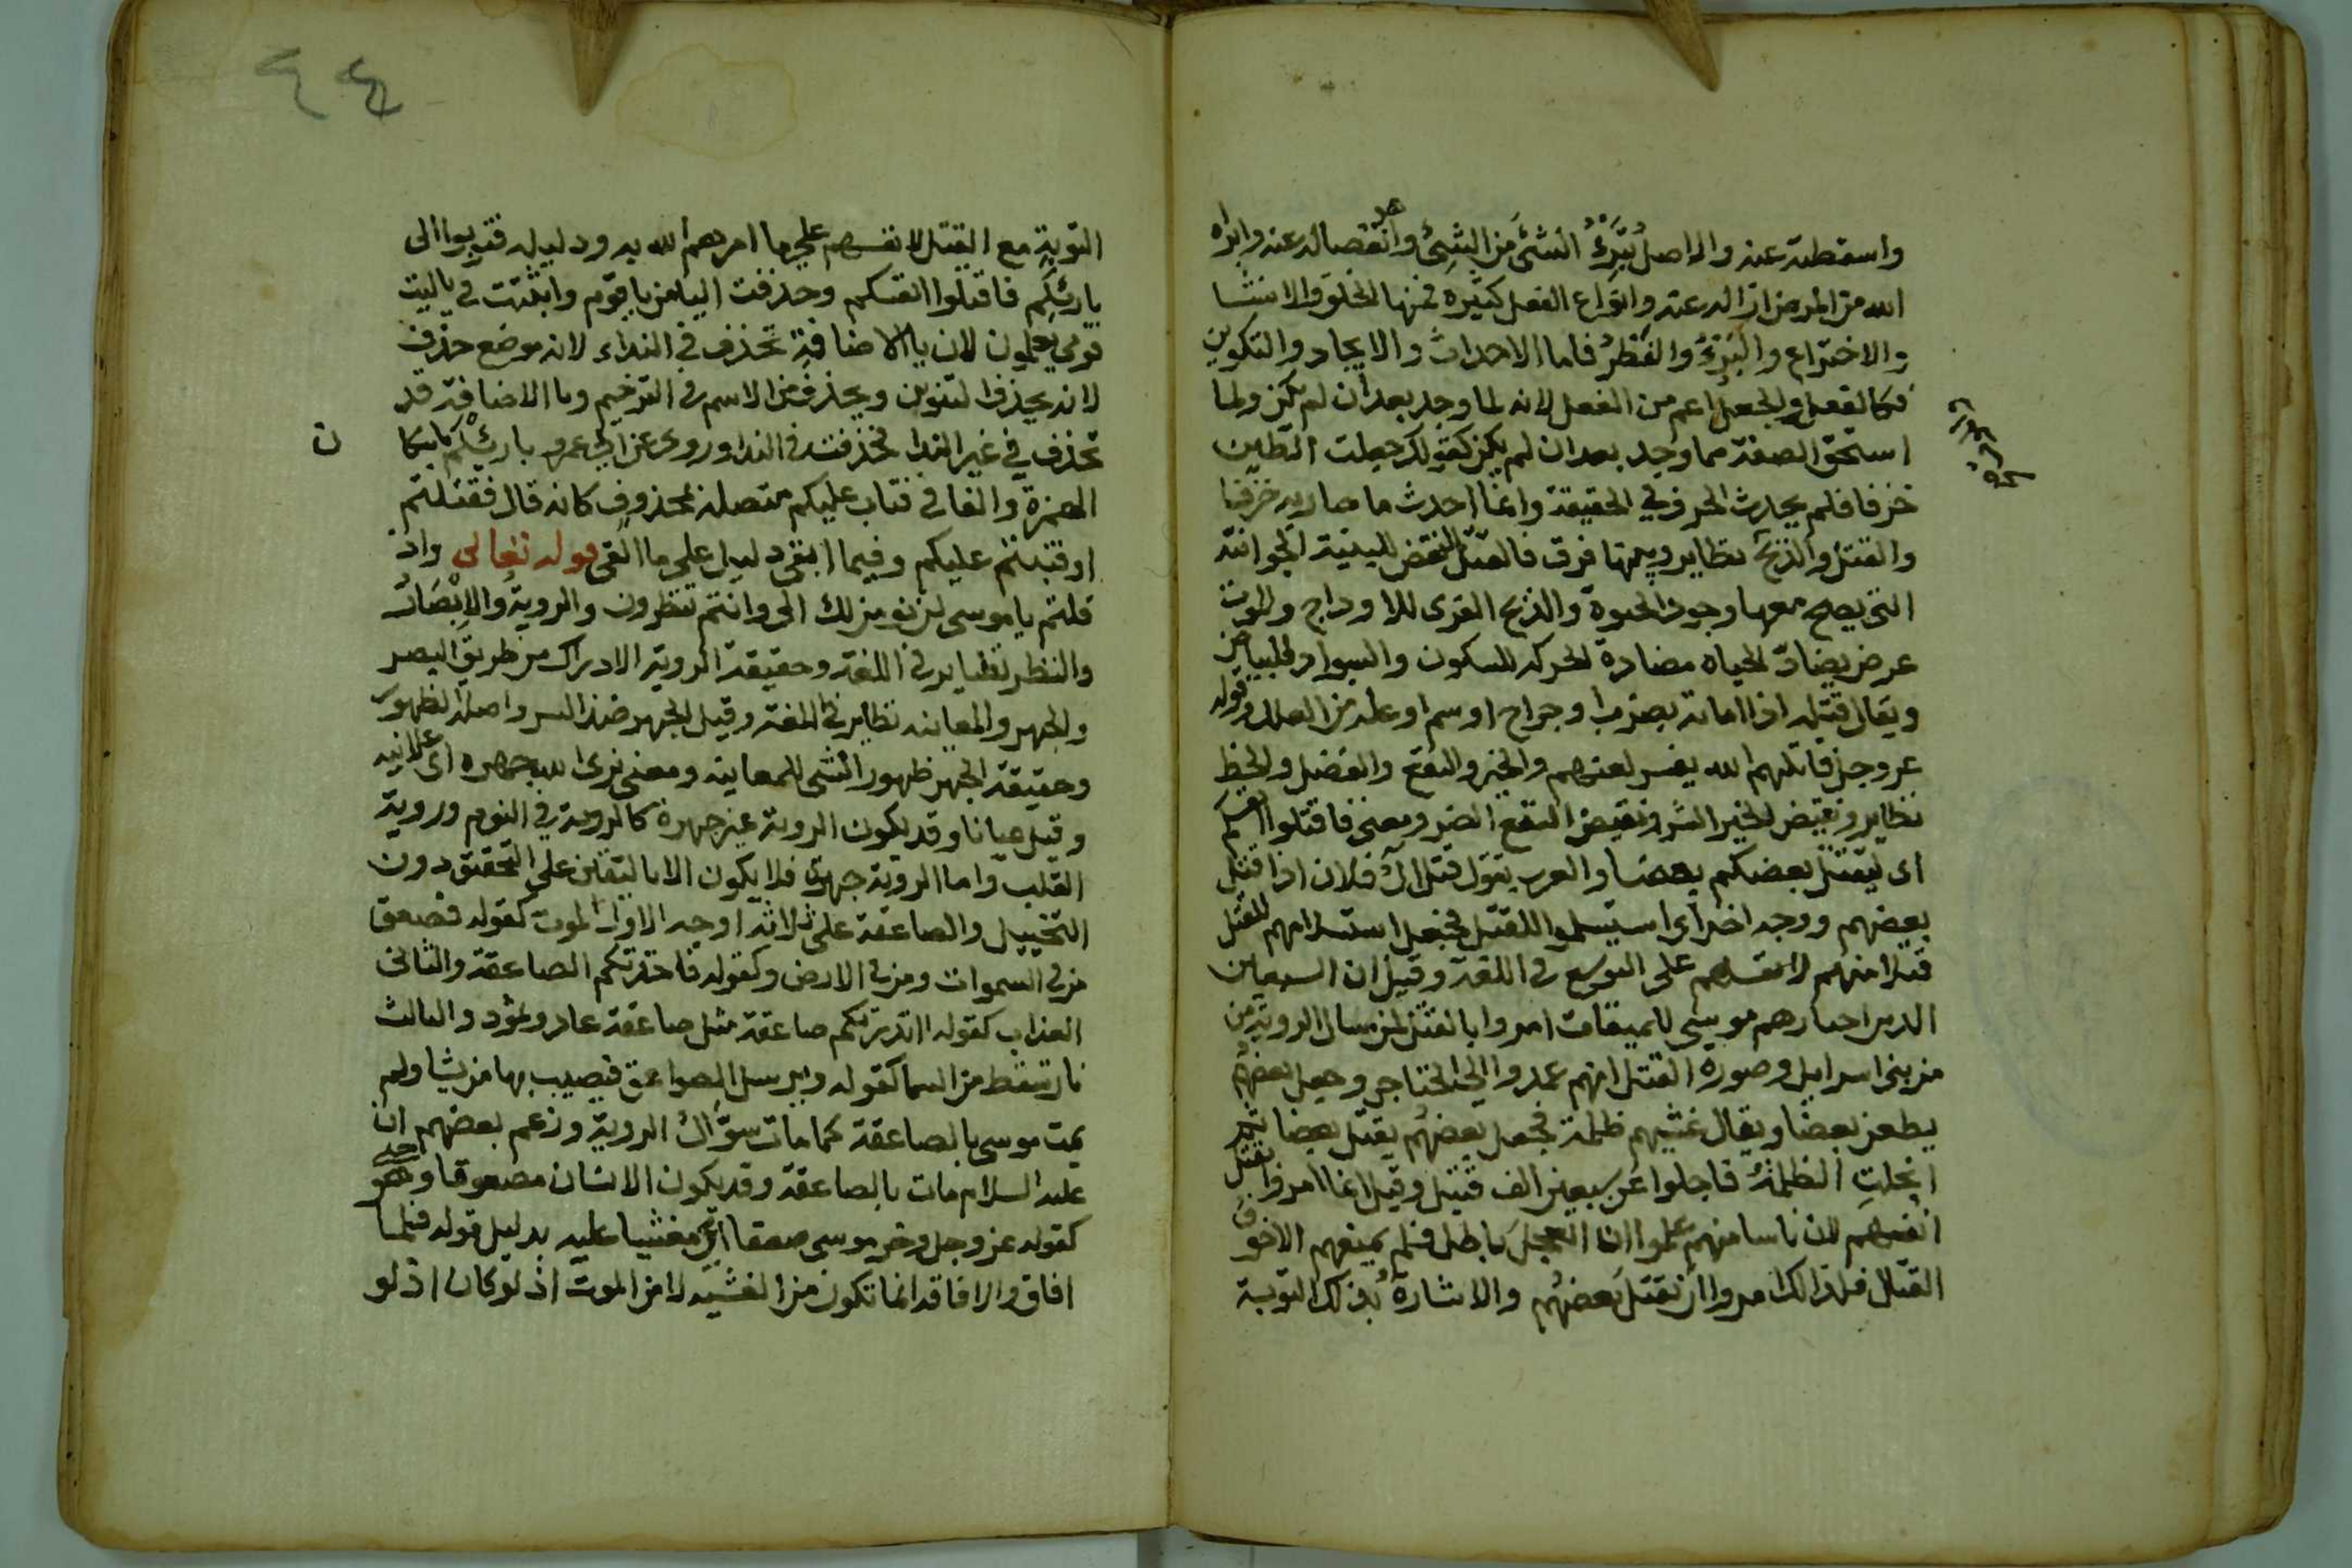 واسقطته عنه والاصل تَبَرُّءُ الشئ من الشئ وانفصاله عنه وابراه
الله من المرض ازاله عنه وانواع الفعل كثيره فمنها الخلق والانشا
والاختراع والبَرْءُ والفَطْرُ فاما الاحداث والايجاد والتكوين
فكالفعل والجعل اعم من الفعل لانه لما وجد بعد ان لم يكن ولما
استحق الصفة مما وجد بعد ان لم يكن كقولك جعلت الطين
خزفا فلم يحدث الخزف في الحقيقة وانما احدث ما صار به خزفا
والقتل والذبح نظاير وبينهما فرق فالقتل النقض للبنية الحيوانية
التي يصح معها وجود الحيوة والذبح الفرى للاوداج والموت
عرض يضادّ الحياه مضادة الحركه للسكون والسواد للبياض
ويقال قتله اذا اماته بضرب او جراح او سم او عله من العلل وقوله
عز وجل قاتلهم الله يفسر لعنهم والخير والنفع والفضل والحظ
نظاير ونقيض الخير الشر ونقيض النفع الضر ومعنى فاقتلوا انفسكم
اى ليقتل بعضكم بعضا والعرب يقول قتل آل فلان اذا قتل
بعضهم ووجه اخر اى استسلموا للقتل فجعل استسلامهم للقتل
قتلا منهم لانفسهم على التوسع فى اللغة وقيل ان السبعين
الذين اختارهم موسى للميقات امروا بالقتل لمن سال الروية من
من بنى اسرايل وصورة القتل انهم عمدوا الى الخناجر وجعل بعضهم
يطعن بعضا ويقال غشيهم ظلمة فجعل بعضهم يقتل بعضا ثم
انجلتِ الظلمةُ فاجلوا عن سبعين الف قتيل وقيل انما امروا بقتل
انفسهم لان ناسا منهم علموا ان العجل باطل فلم يمنعهم الا خوف
القتال فلذالك امروا ان يقتل بعضهم والاشارة بذلك التوبة
التوبة مع القتل لانفسهم على ما امرهم الله به ودليله فتوبوا الى
بارئكم فاقتلوا انفسكم وحذفت اليا من يا قوم واثبتت فى ياليت
قومي يعلمون لان يا الاضافة تحذف في النداء لانه موضع حذف
لانه يحذف التنوين ويحذف من الاسم فى الترخيم ويا الاضافة قد
تحذف في غير الندا فحذفت فى الندا وروى عن ابي عمرو بارئْكم باسكان
الهمزة والفا فى فتاب عليكم متصلة بمحذوف كانه قال فقتلتم
او فتبتم عليكم وفيما ابقى دليل على ما القى قوله تعالى واذ
قلتم يا موسى لن نومن لك الى وانتم تنظرون والرويةُ والإبْصَارُ
والنظر نظاير فى اللغة وحقيقة الروية الادراك من طريق البصر
والجهر والمعاينه نظاير فى اللغة وقيل الجهر ضد السر واصله الظهور
وحقيقة الجهر ظهور الشى للمعاينة ومعنى نرى الله جهرة اى علانيه
وقيل عيانا وقد يكون الروية غير جهرة كالروية في النوم وروية
القلب واما الروية جهرة فلا يكون الا باليقين على التحقيق دون
التخييل والصاعقة على ثلاثة اوجه الاول الموت كقوله فصعق
من فى السموات ومن فى الارض وكقوله فاخذتكم الصاعقة والثانى
العذاب كقوله انذرتكم صاعقة مثل صاعقة عاد وثمود والثالث
نار تسقط من السما كقوله ويرسل الصواعق فيصيب بها من يشا ولم
يمت موسى بالصاعقة كما مات سُؤَّالُ الروية وزعم بعضهم ان
عليه السلام مات بالصاعقة وقد يكون الانسان مصعوقا وهو حى
كقوله عز وجل وخر موسى صعقا اى مغشيا عليه بدليل قوله فلما
افاق والافاقه انما تكون من الغشيه لا من الموت اذ لو كان اذ لو